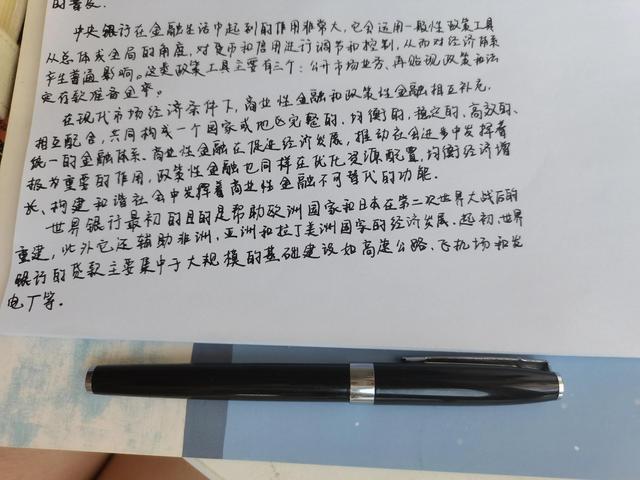 的普及.
中央银行在金融生活中起到的作用非常大,它会运用一般性政策工具
从总体或全局的角度,对货币和信用进行调节和控制,从而对经济体系
产生普遍影响。这类政策工具主要有三个:公开市场业务、再贴现政策和法
定存款准备金率。
在现代市场经济条件下,商业性金融和政策性金融相互补充、
相互配合,共同构成一个国家或地区完整的、均衡的、稳定的、高效的、
统一的金融体系、商业性金融在促进经济发展,推动社会进步中发挥着
极为重要的作用,政策性金融也同样在优化资源配置,均衡经济增
长、构建和谐社会中发挥着商业性金融不可替代的功能.
世界银行最初的目的是帮助欧洲国家和日本在第二次世界大战后的
重建,此外它还辅助非洲,亚洲和拉丁美洲国家的经济发展.起初,世界
银行的贷款主要集中于大规模的基础建设如高速公路、飞机场和发
电厂等.